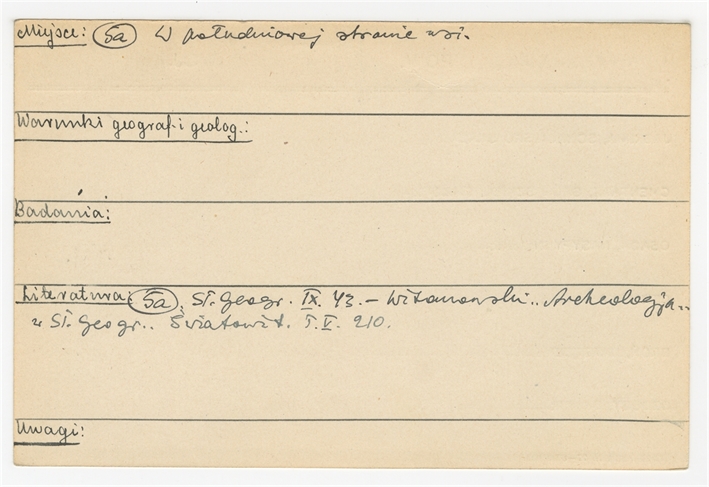 Miejsce: 5a W południowej stronie wsi.
Warunki geograf. i geolog.:
Badania:
Literatura: 5a, Sł. Geogr. IX. 43. – Witanowski.. Archeologja..
w Sł. Geogr.. Światowit. T. V. 210.
Uwagi: